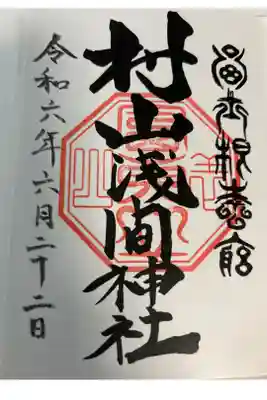 富士根本宮
村山浅間神社
令和六年六月二十二日